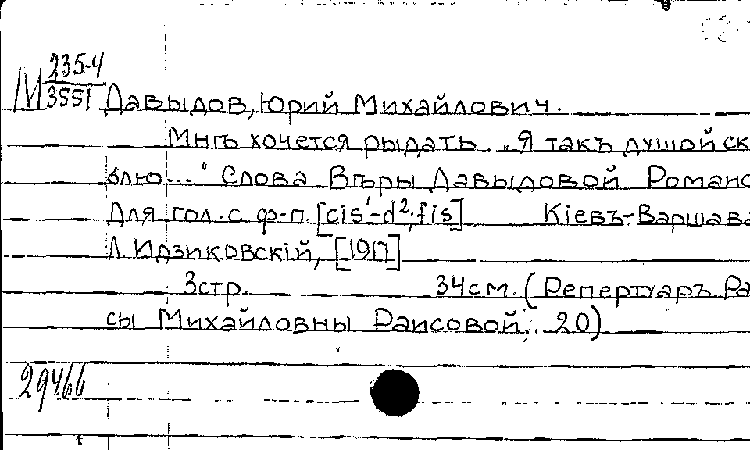 М 235-4
3551
Давыдов, Юрий Михайлович.
Мнѣ хочется рыдать. „Я такъ душой ск
блю..." Слова Вѣры Давыдовой. Романс
Для гол. с ф-п. [cis¹-d²,fis] Кіевъ-Варшава
Л. Идзиковскій, [191]
3стр. 34см. (Репертуаръ Ра
сы Михайловны Раисовой, 20)
29466